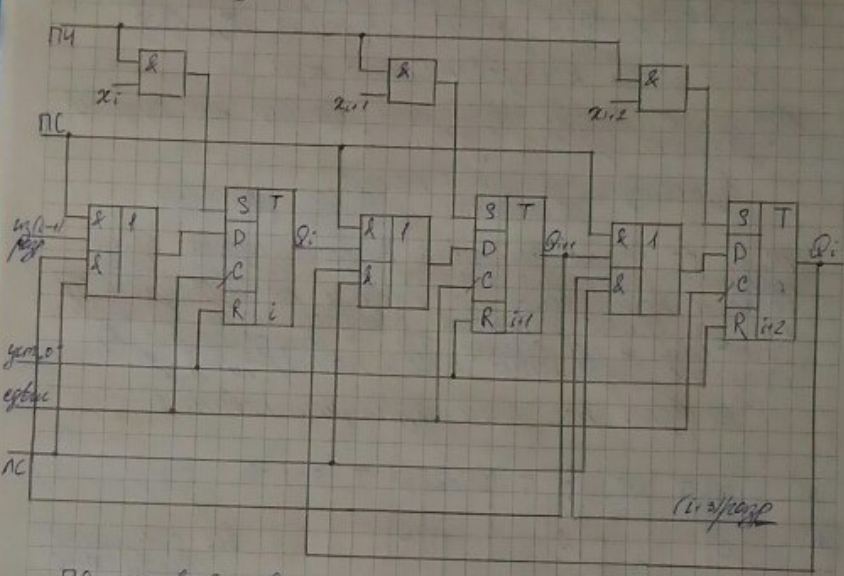 ПЧ
&
xi
&
xi+1
&
xi+2
ПС
из(i-1)
разр
&
1
&
S T
D
C
R i
Qi
&
1
&
S T
D
C
R i+1
Qi+1
&
1
&
S T
D
C
R i+2
Qi
уст.0
сдвиг
ЛС
(i+3)разр